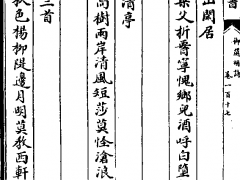 書
御選明詩 卷一百十七
山閒居
父折寧愧鄉兒酒呼白墮
清亭
樹兩岸清風短莎莫怪滄浪
首
秋色楊柳隄邊月明莫教西軒